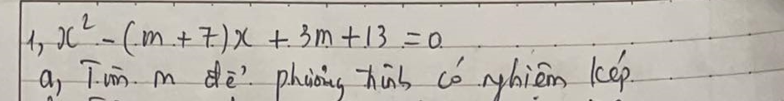 1, x² - (m + 7)x + 3m + 13 = 0
a, Tìm m để phương trình có nghiệm kép.